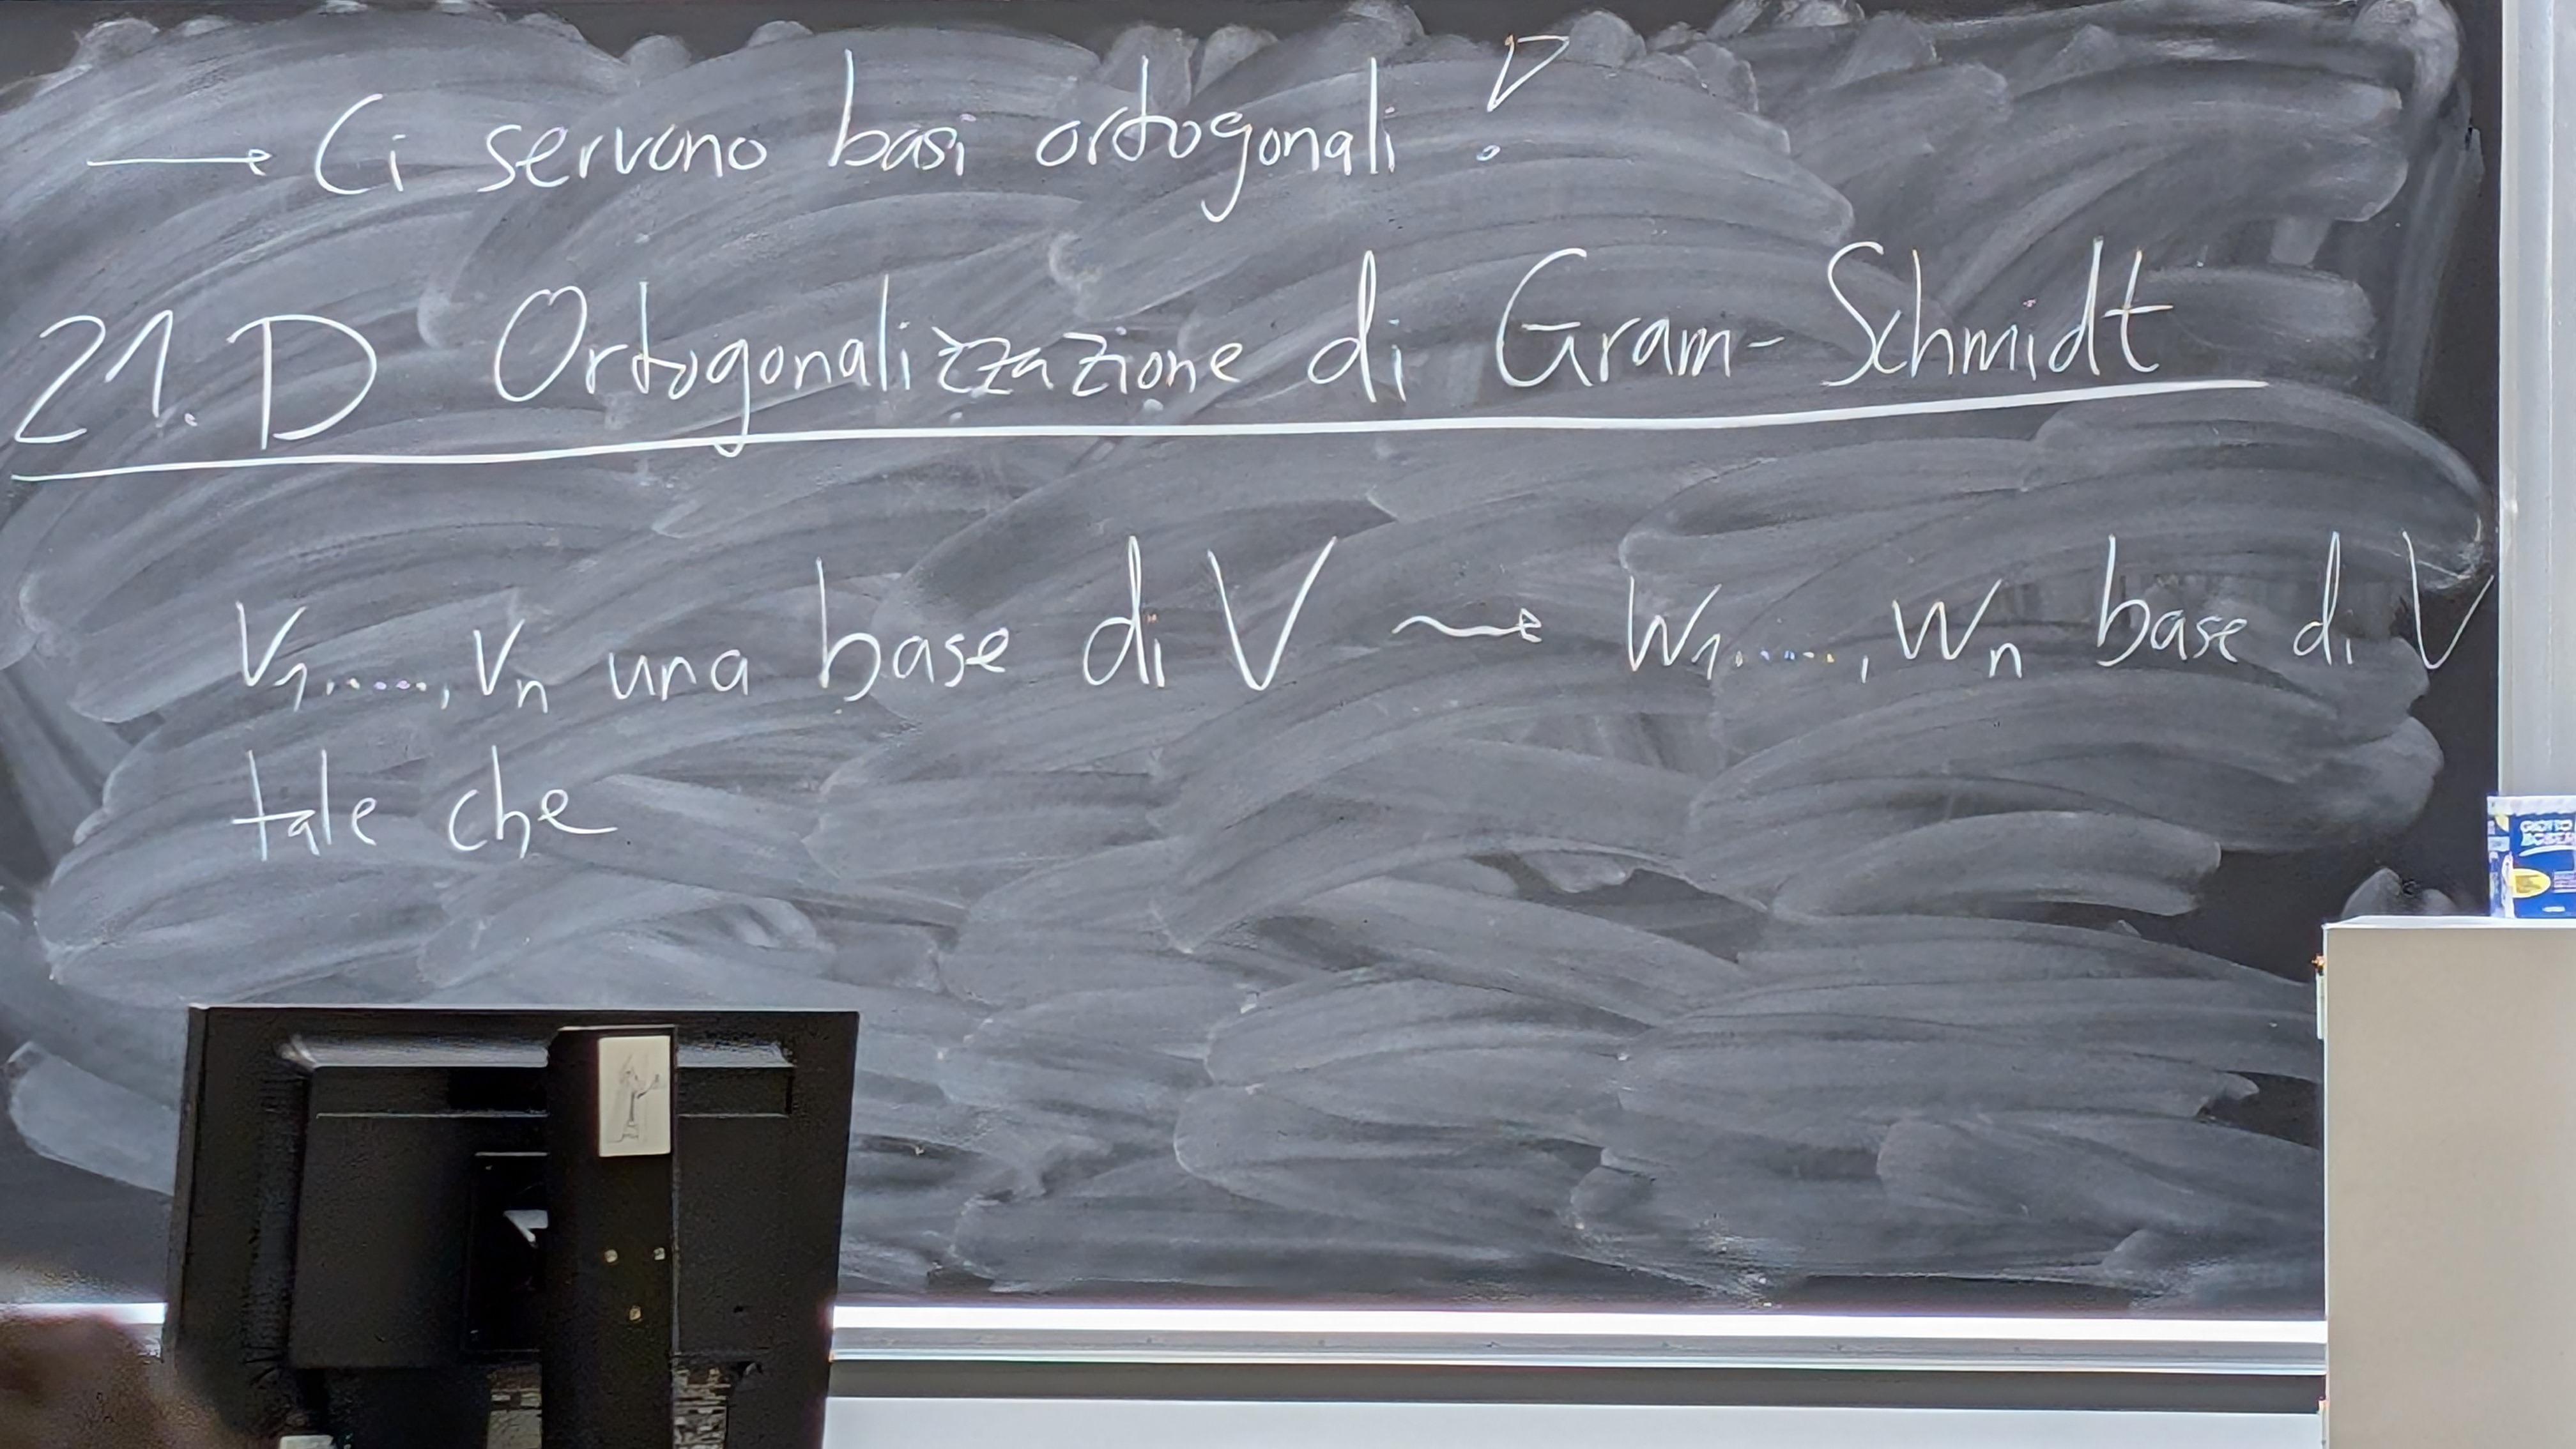 → Ci servono basi ortogonali !
21.D Ortogonalizzazione di Gram-Schmidt
v₁,....,vₙ una base di V ⇝ w₁....,wₙ base di V
tale che